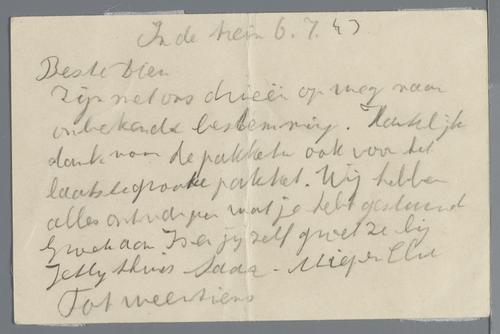 In de trein 6.7.43
Beste Dien
Zijn met ons drieën op weg naar
onbekende bestemming. Hartelijk
dank voor de pakketen ook voor het
laatste groote pakket. Wij hebben
alles ontvangen wat je hebt gestuurd
Groet aan en jij zelf groet ze bij
Jetty thuis
Tot weerziens